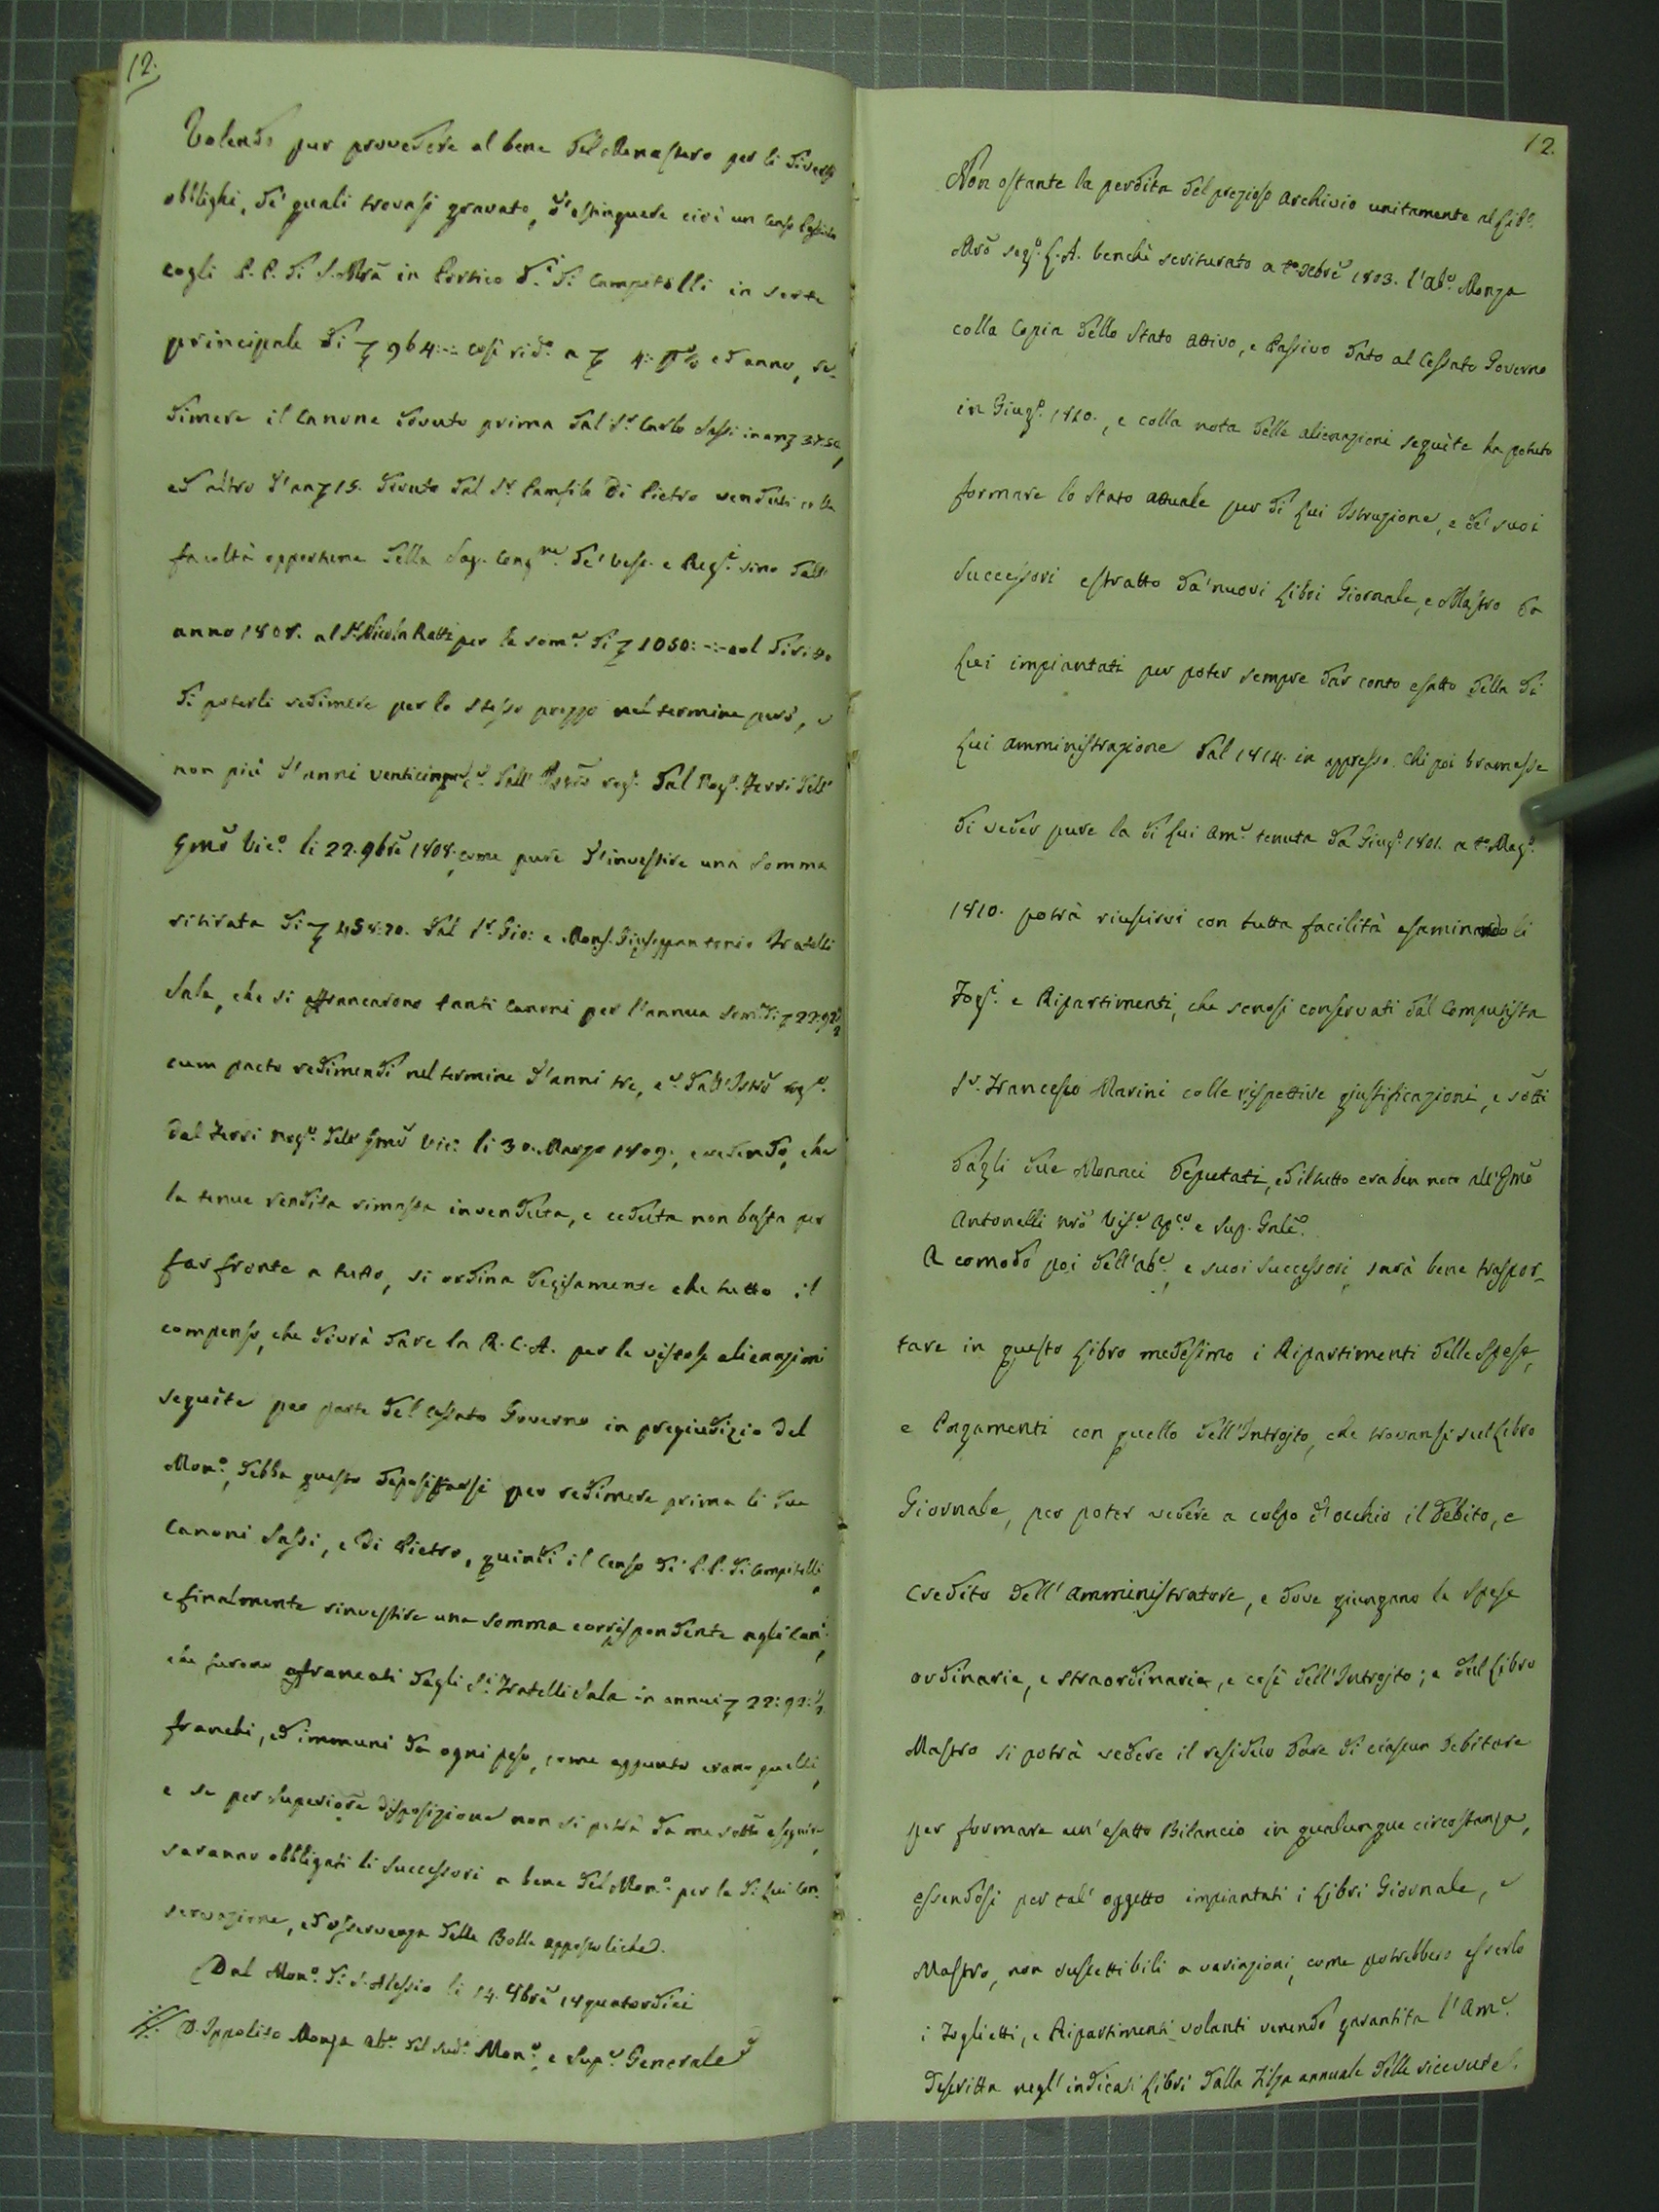 12.
Volendo pur provedere al bene del Monastero per li diversi
obblighi, de' quali trovasi gravato, d'estinguere cioè un Censo
cogli P.P. di S. Mrã in Portico d.i di Campitelli in sorte
principale di 964:-: così rid.o a 4: % ed anno, re-
dimere il Canone dovuto prima dal S.r Carlo Sassi in an 37:50,
ed altro d'an 15. dovuto dal S.r Pamfilo di Pietro venduti colla
facoltà opportuna della Sag. Cong.ne de' Vesc. e Reg.i sino dall'
anno 1808. al S.r Nicola Ratti per la som.a di 1050:-:- col diritto
di poterli redimere per lo stesso prezzo nel termine però, e
non più d'anni venticinque dall' Istrõ rog.o dal Nog.o Ferri dell'
Emõ Vic.o li 22. 9brẽ 1808. come pure d'investire una somma
ritirata di 458:70. dal S.r Gio: e Mons. Giuseppantonio Fratelli
Sala, che si affrancarono tanti Canoni per l'annua som.a di 22:92½
cum pacto redimendi nel termine d'anni tre, e.a dall'Istrõ rog.o
dal Ferri Nog.o dell' Emõ Vic: li 30. Marzo 1809., vedendo, che
la tenue rendita rimasta invenduta, e ceduta non basta per
far fronte a tutto, si ordina decisamente che tutto il
compenso, che dovrà dare la R.C.A. per le vistose alienazioni
seguìte per parte del cessato Governo in pregiudizio del
Mon.o, debba questo depositarsi per redimere prima li due
Canoni Sassi, e di Pietro, quindi il Censo de' P.P. di Campitelli,
e finalmente rinvestire una somma corrispondente agli Can.i,
che furono affrancati dagli S.i Fratelli Sala in annui 22:92:½
franchi, ed immuni da ogni peso, come appunto erano quelli,
e se per Superiore disposizione non si potrà da me sottõ eseguire,
saranno obbligati li Successori a bene del Mon.o per la di lui con-
servazione, ed osservanza delle Bolle appostoliche.
Dal Mon.o di S. Alessio li 14. 9brẽ 18quatordici
D. Ippolito Monza Ab.e del sud.o Mon.o, e Sup.e Generale
12.
Non ostante la perdita del prezioso Archivio unitamente al Lib.o
Mrõ seg.o L.A. benchè scriturato a t.o Xebrẽ 1803. l'Ab.e Monza
colla Copia dello Stato Attivo, e Passivo dato al Cessato Governo
in Giug.o 1810., e colla nota delle alienazioni seguìte ha potuto
formare lo Stato attuale per di lui Istruzione, e de' suoi
Successori estratto da' nuovi Libri Giornale, e Mastro da
lui impiantati per poter sempre dar conto esatto della di
lui amministrazione dal 1814. in appresso. Chi poi bramasse
di veder pure la di lui Am.e tenuta da Giug.o 1801. a t.o Mag.o
1810. potrà riuscirvi con tutta facilità esaminando li
Fog.i e Ripartimenti, che sonosi conservati dal Computista
S.r Francesco Marini colle rispettive giustificazioni, e sõtti
dagli due Monaci deputati, ed il tutto era ben noto all'Emõ
Antonelli nrõ Vis.e Ap.co e Sup. Gnlẽ.
A comodo poi dell'Ab.e, e suoi Successori, sarà bene traspor-
tare in questo Libro medesimo i Ripartimenti delle Spese,
e Pagamenti con quello dell'Introjto, che trovansi sul Libro
Giornale, per poter vedere a colpo d'occhio il debito, e
credito dell'Amministratore, e dove giungano le Spese
ordinarie, e straordinarie, e così dell'Introjto; e dal Libro
Mastro si potrà vedere il residuo dare di ciascun debitore
per formare un'esatto Bilancio in qualunque circostanza,
essendosi per tal' oggetto impiantati i Libri Giornale, e
Mastro, non suscettibili a variazioni, come potrebbero esserlo
i Foglietti, e Ripartimenti volanti venendo garantita l'Am.e
descritta negl'indicati Libri dalla Filza annuale delle ricevute.